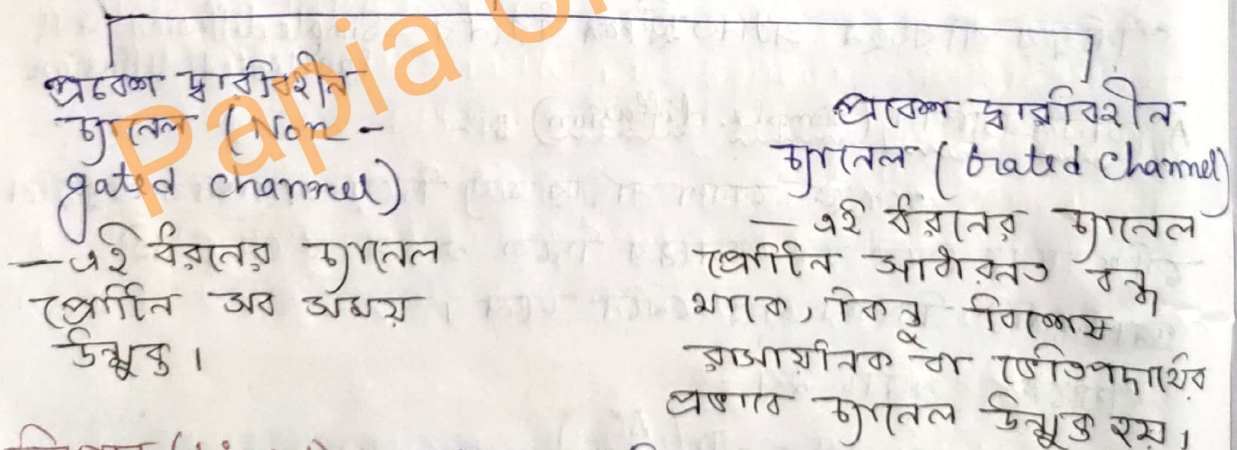 প্রবেশ দ্বারবিহীন
চ্যানেল (Non-
gated channel)
— এই ধরনের চ্যানেল
প্রোটিন সব সময়
উন্মুক্ত।
প্রবেশ দ্বারবিহীন
চ্যানেল (Gated Channel)
— এই ধরনের চ্যানেল
প্রোটিন সাধারনত বন্ধ
থাকে, কিন্তু বিশেষ
রাসায়নিক বা ভৌতপদার্থের
প্রভাবে চ্যানেল উন্মুক্ত হয়।
Papia